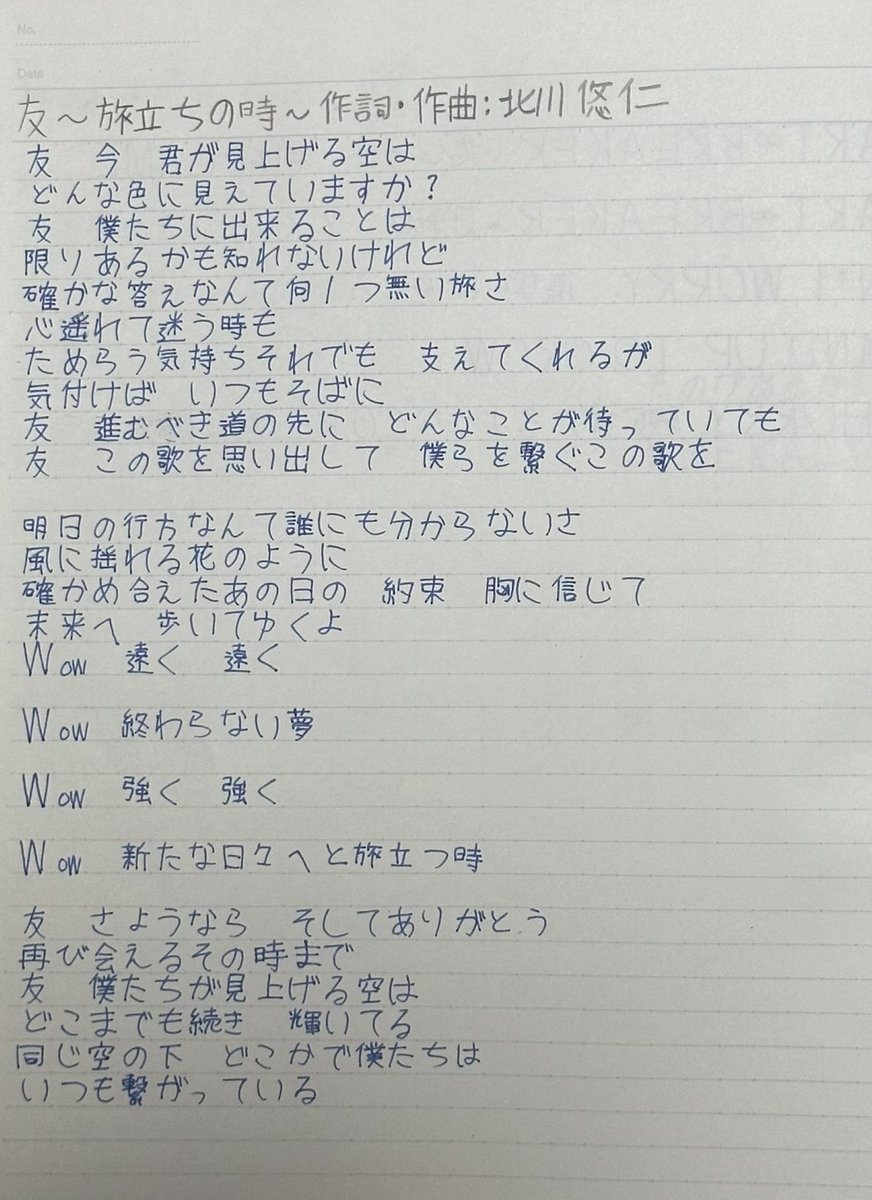 No.
Date
友～旅立ちの時～作詞・作曲:北川悠仁
友　今　君が見上げる空は
どんな色に見えていますか?
友　僕たちに出来ることは
限りあるかも知れないけれど
確かな答えなんて何1つ無い旅さ
心遥れて迷う時も
ためらう気持ちそれでも　支えてくれるが
気付けば　いつもそばに
友　進むべき道の先に　どんなことが待っていても
友　この歌を思い出して　僕らを繋ぐこの歌を
明日の行方なんて誰にも分からないさ
風に揺れる花のように
確かめ合えたあの日の　約束　胸に信じて
未来へ　歩いてゆくよ
Wow　遠く　遠く
Wow　終わらない夢
Wow　強く　強く
Wow　新たな日々へと旅立つ時
友　さようなら　そしてありがとう
再び会えるその時まで
友　僕たちが見上げる空は
どこまでも続き　輝いてる
同じ空の下　どこかで僕たちは
いつも繋がっている